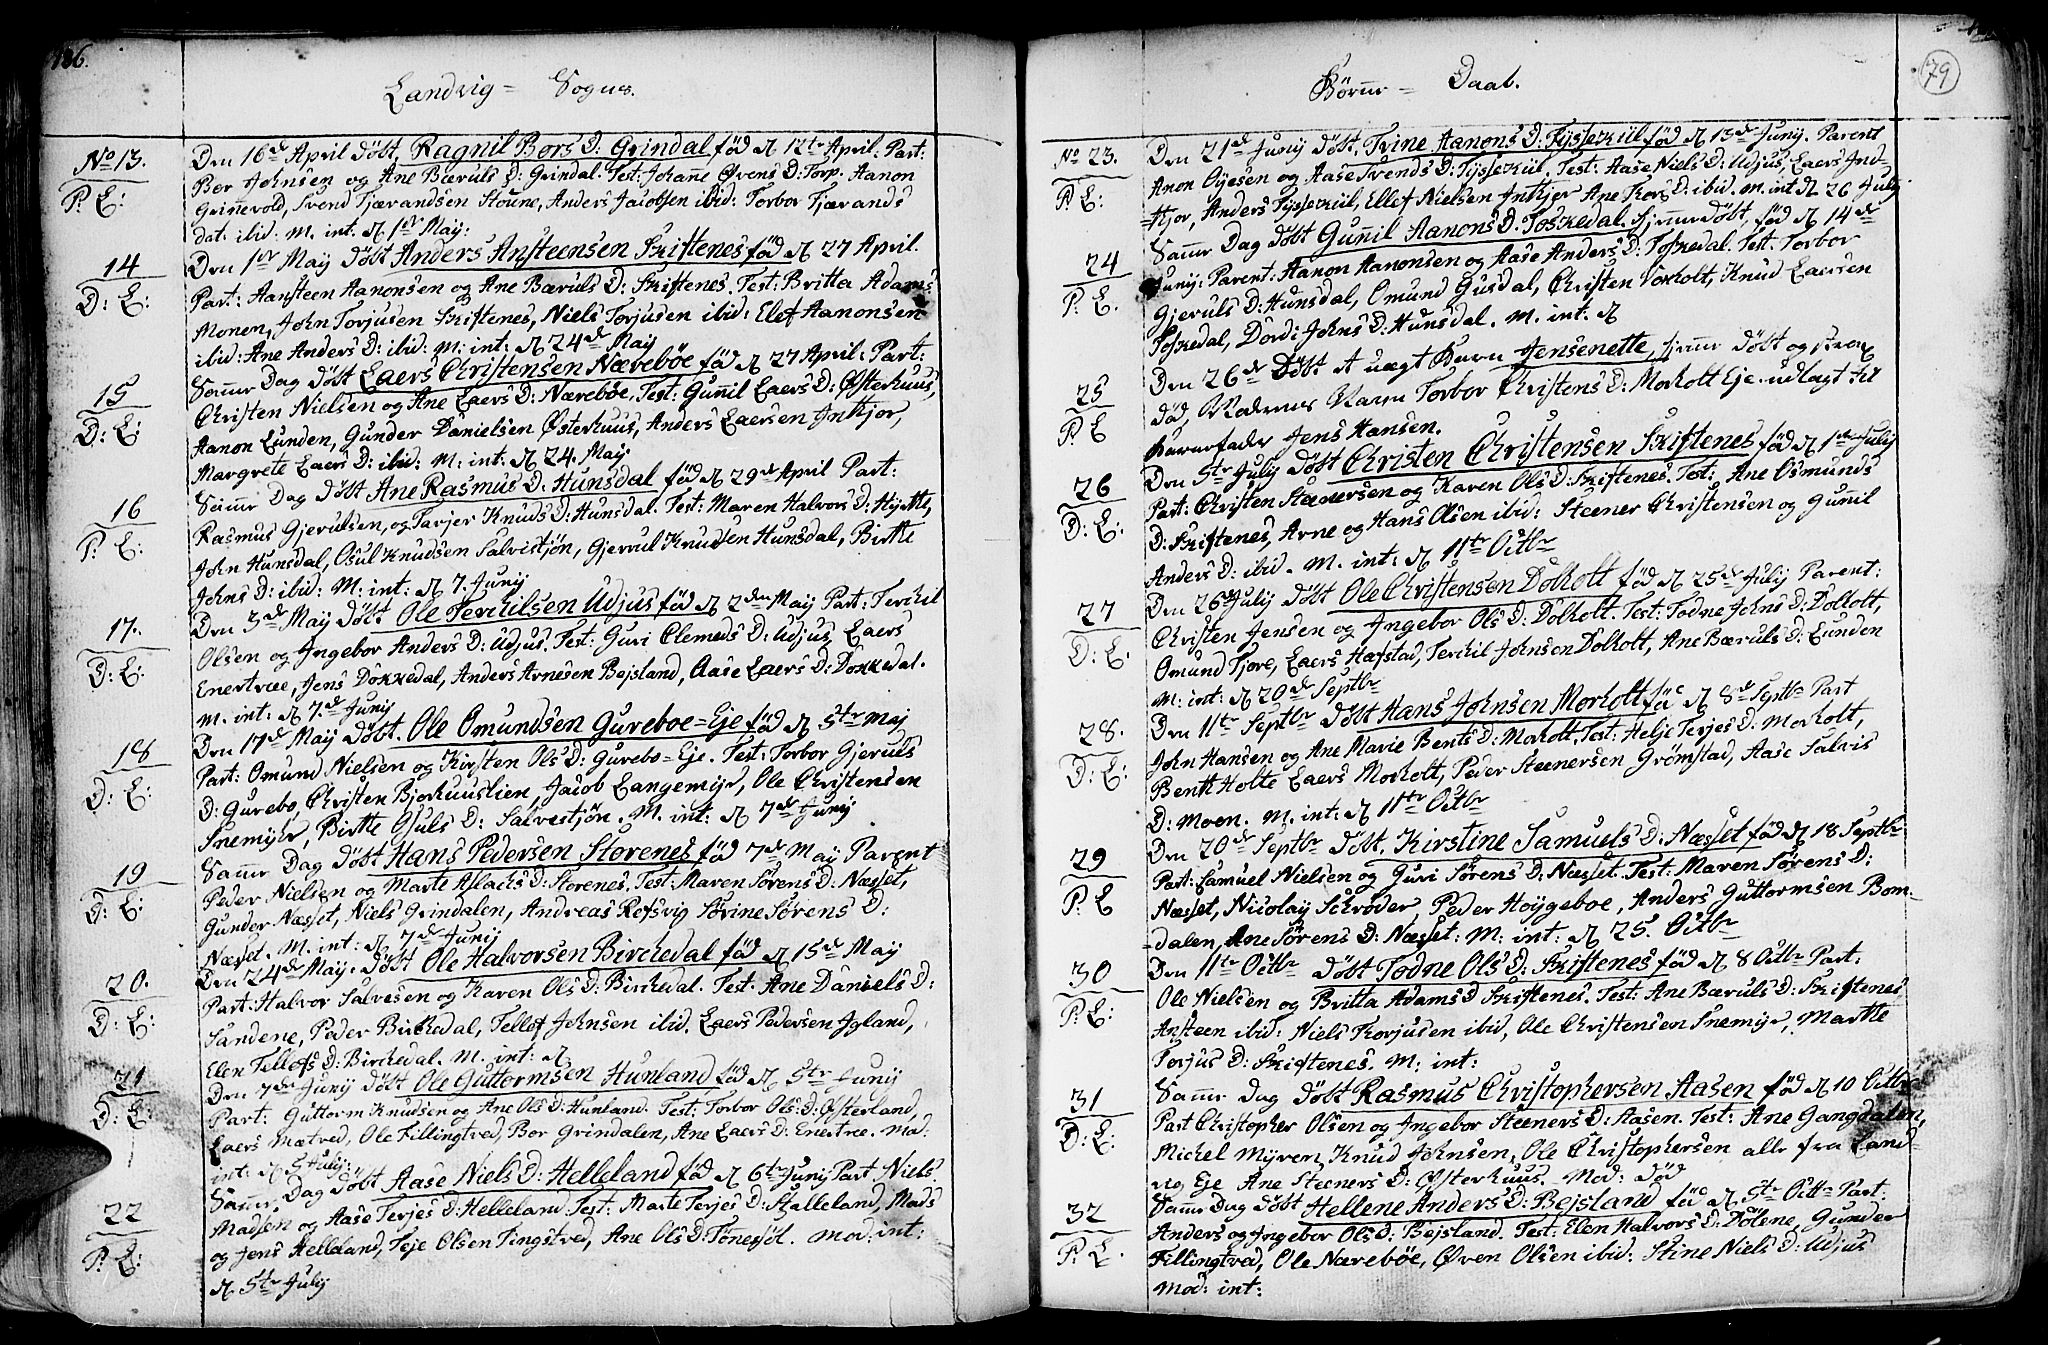 186.
Landvig = Sogns.
No 13.
P: E:
Den 16de April döbt, Ragnil Bors D: Grindal föd d 12te April: Part:
Bor Johnsen og Ane Bæruls D: Grindal. Test: Johañe Øvens D: Torp. Aanon
Griñevold, Svend Tjærandsen Stoune, Anders Jacobsen ibid: Torbor Tjærands
dat. ibid: M. int. d 1ste May:
14
D: E:
Den 1ste Maÿ döbt Anders Ansteensen Skiftenes föd d 27 April.
Part: Aansteen Aanonsen og Ane Bæruls D: Skiftenes. Test: Britta Adams
Monen, John Torjusen Skiftenes, Niels Torjusen ibid: Elef Aanonsen
ibid: Ane Anders D: ibid: M: int: d 24de Maÿ
15
D: E:
Samme Dag döbt Laers Christensen Næreböe föd d 27 April: Part:
Christen Nielsen og Ane Laers D: Nærebôe, Test: Guñil Laers D: Østerhuus,
Aanon Lunden, Gunder Danielsen Østerhuus, Anders Laersen Inkjor,
Margrete Laers D: ibid: M: int: d 24. Maÿ
16
P: E:
Samme Dag döbt Ane Rasmus D. Hunsdal föd d 29de April Part:
Rasmus Gjerulsen, og Tarjer Knuds D: Hunsdal. Test: Maren Halvors D: Hÿrtte,
John Hunsdal, Osul Knudsen Salvistjön, Gjerrul Knudsen Hunsdal, Birtte
Johns D: ibid: M: int: d 7. Junÿ
17.
D: E:
Den 3de Maÿ döbt Ole Terchilsen Udjus föd d 2den Maÿ Part: Terchil
Olsen og Ingebor Anders D: Udjus. Test: Guri Clemeds D: Udjus, Laers
Enertræe, Jens Dokkedal, Anders Arnesen Bejsland, Aase Laers D: Dokkedal.
M. int: d 7de Junÿ
18
D: E:
Den 17de Maÿ döbt. Ole Omundsen Gureboe=Eje föd d 5te Maj
Part: Omund Nielsen og Kirsten Ols D: Gurebo=Eje. Test: Torbor Gjeruls
D: Gurebo, Christen Bjorhuuslien, Jacob Langemÿr, Ole Christensen
Snemÿhr, Birtte Gjuls D: Salvestjön. M. int: d 7de Junÿ
19
D: E:
Samme Dag döbt Hans Pedersen Storenes föd 7de Maÿ Parent
Peder Nielsen og Marte Aslachs D: Storenes, Test: Maren Sörens D: Næsset,
Gunder Næsset, Niels Grindalen, Andreas Refsvig Sörine Sörens D:
Næsset. M. int: d 7de Junÿ
20.
D: E:
Den 24de Maÿ. döbt Ole Halvorsen Birchedal föd d 15de Maÿ
Part: Halvor Salvesen og Karen Ols D: Birchedal. Test: Ane Daniels D:
Sandene, Peder Birchedal, Tellof Johnsen ibid. Laers Pedersen Igland,
Elen Tellofs D: Birchedal. M. int: d
21
D: E:
Den 7de Junÿ döbt Ole Guttormsen Hunland föd d 5te Junÿ
Part: Guttorm Knudsen og Ane Ols D: Hunland. Test: Torbor Ols: D: Østerland,
Laers Mætved, Ole Fillingtved, Bor Grindalen, Ane Laers D: Enertree. Mod.
int: d 5 Julÿ:
22
P: E:
Samme Dag döbt Aase Niels D: Helleland föd d 6te Junÿ Part: Niels
Madsen og Aase Terjes D: Helleland. Test: Marte Terjes D: Stalleland, Mads
og Jens Helleland, Teje Olsen Tingstved, Ane Ols D: Tönnesöl. Mod: int:
d 5te Julÿ
Börne = Daab.
79
No 23.
P: E:
Den 21de Junÿ döbt. Trine Aanons D: Tÿssekiil föd d 13de Junÿ. Parent
Anon Oÿesen og Aase Svends D: Tÿssekiil. Test: Aase Niels D: Udjus, Laers Ind-
tkjor, Anders Tÿssekiil, Ellef Nielsen Intkjor Ane Tors D: ibid. M. int d 26 Julÿ
24
P: E.
Samme Dag döbt Guñil Aanons D. Foskedal. hjemme döbt, föd d 14de
Junÿ: Parent: Aanon Aanonsen og Aase Anders D: Foskedal. Test. Torbor
Gjeruls D: Hunsdal, Omund Gusdal, Christen Voxholt, Knud Laersen
Foskedal, Dordi Johns D: Hunsdal. M. int: d
25
P: E
Den 26de Döbt et uægt Barn Jensenette, hjemme döbt og strax
död, Moderens Navn Torbor Christens D: Morholt Eje. udlagt til
Barnefader Jens Hansen.
26
D: E:
Den 5te Julÿ döbt Christen Christensen Skiftenes föd d 1ste Julÿ
Part: Christen Steenersen og Karen Ols D: Skiftenes. Test: Ane Osmunds
D: Skiftenes, Arne og Hans Olsen ibid: Steener Christensen og Guñil
Anders D: ibid. M. int: d 11te Octbr
27
D: E:
Den 26 Julÿ döbt Ole Christensen Dolholt föd d 25de Julÿ Parent:
Christen Jensen og Ingebor Ols D: Dolholt. Test: Todne Johns D: Dolholt,
Omund Tjore, Laers Hæfstad, Terchil Johnsen Dolholt, Ane Bæruls D: Lunden
M: int: d 20de Septbr
28.
D: E:
Den 11te Septbr döbt Hans Johnsen Morholt föd d 8de Septbr Part
John Hansen og Ane Marie Bents D: Morholt. Test: Helje Terjes D: Morholt,
Bentt Holte Laers Morholt, Peder Steenersen Grömstad, Aase Salvis
D: Moen. M. int: d 11te Octbr
29
P: E
Den 20de Septbr döbt, Kirstine Samuels D: Næsset föd d 18 Septbr
Part: Samuel Nielsen og Guri Sörens D: Næsset. Test: Maren Sörens D:
Næsset, Nicolaÿ Schröder, Peder Hoÿgeboe, Anders Guttormsen Bom-
dalen, Ane Sörens D: Næsset: M: int: d 25. Octbr
30
P: E:
Den 11te Octbr döbt Todne Ols D: Skiftenes föd d 8 Octbr Part:
Ole Nielsen og Britta Adams D Skiftenes. Test: Ane Bæruls D: Skiftenes,
Ansteen ibid: Niels Torjusen ibid, Ole Christensen Snemÿr, Martte
Torjus D: Skiftenes. M: int:
31
D: E:
Samme Dag döbt Rasmus Christophersen Aasen föd d 10 Octbr
Part Christopher Olsen og Ingebor Steeners D: Aasen. Test: Ane Gangdalen,
Michel Mÿren, Knud Johnsen, Ole Christophersen alle fra Land-
vig Eje Ane Steeners D: Østerhuus. Mod: död
32
P: E.
Samme Dag döbt Hellene Anders D: Bejsland föd d 5te Octbr Part:
Anders og Ingebor Ols D: Bejsland. Test: Elen Halvors D: Dölene, Gunder
Fillingtved, Ole Nærebôe, Øven Olsen ibid: Stine Niels D: Udjus
Mod: int: